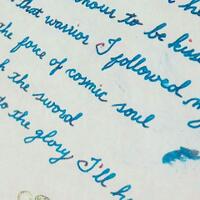 to be kiss
that warrior I followed my
the force of cosmic soul
the sword
to the glory I'll h